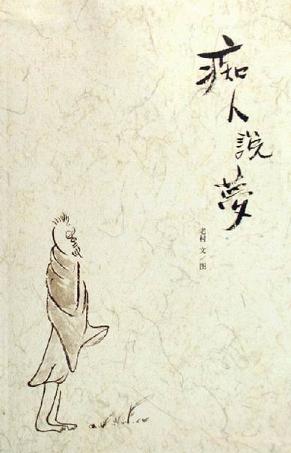 痴人說夢
老村 文/图